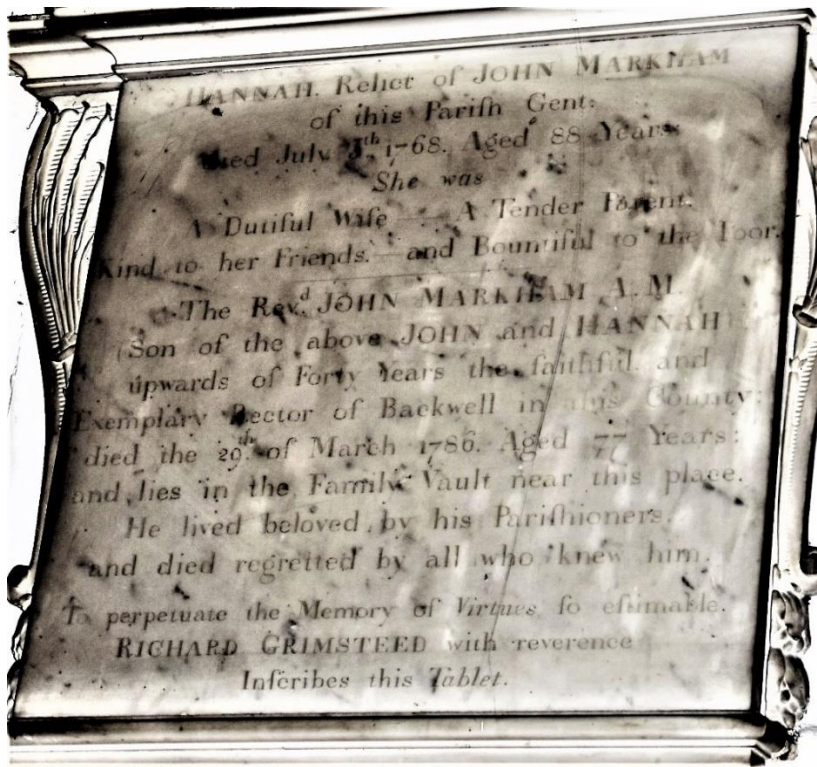 HANNAH, Relict of JOHN MARKHAM
of this Pariſh Gent:
died July 5th 1768. Aged 88 Years
She was
A Dutiful Wife — A Tender Parent.
Kind to her Friends. — and Bountiful to the Poor.
The Revd. JOHN MARKHAM A.M.
(Son of the above JOHN and HANNAH)
upwards of Forty Years the faithful and
Exemplary Rector of Backwell in this County:
died the 29th of March 1786. Aged 77 Years:
and lies in the Family Vault near this place.
He lived beloved by his Pariſhioners,
and died regretted by all who knew him.
To perpetuate the Memory of Virtues ſo eſtimable.
RICHARD GRIMSTEED with reverence
Inſcribes this Tablet.